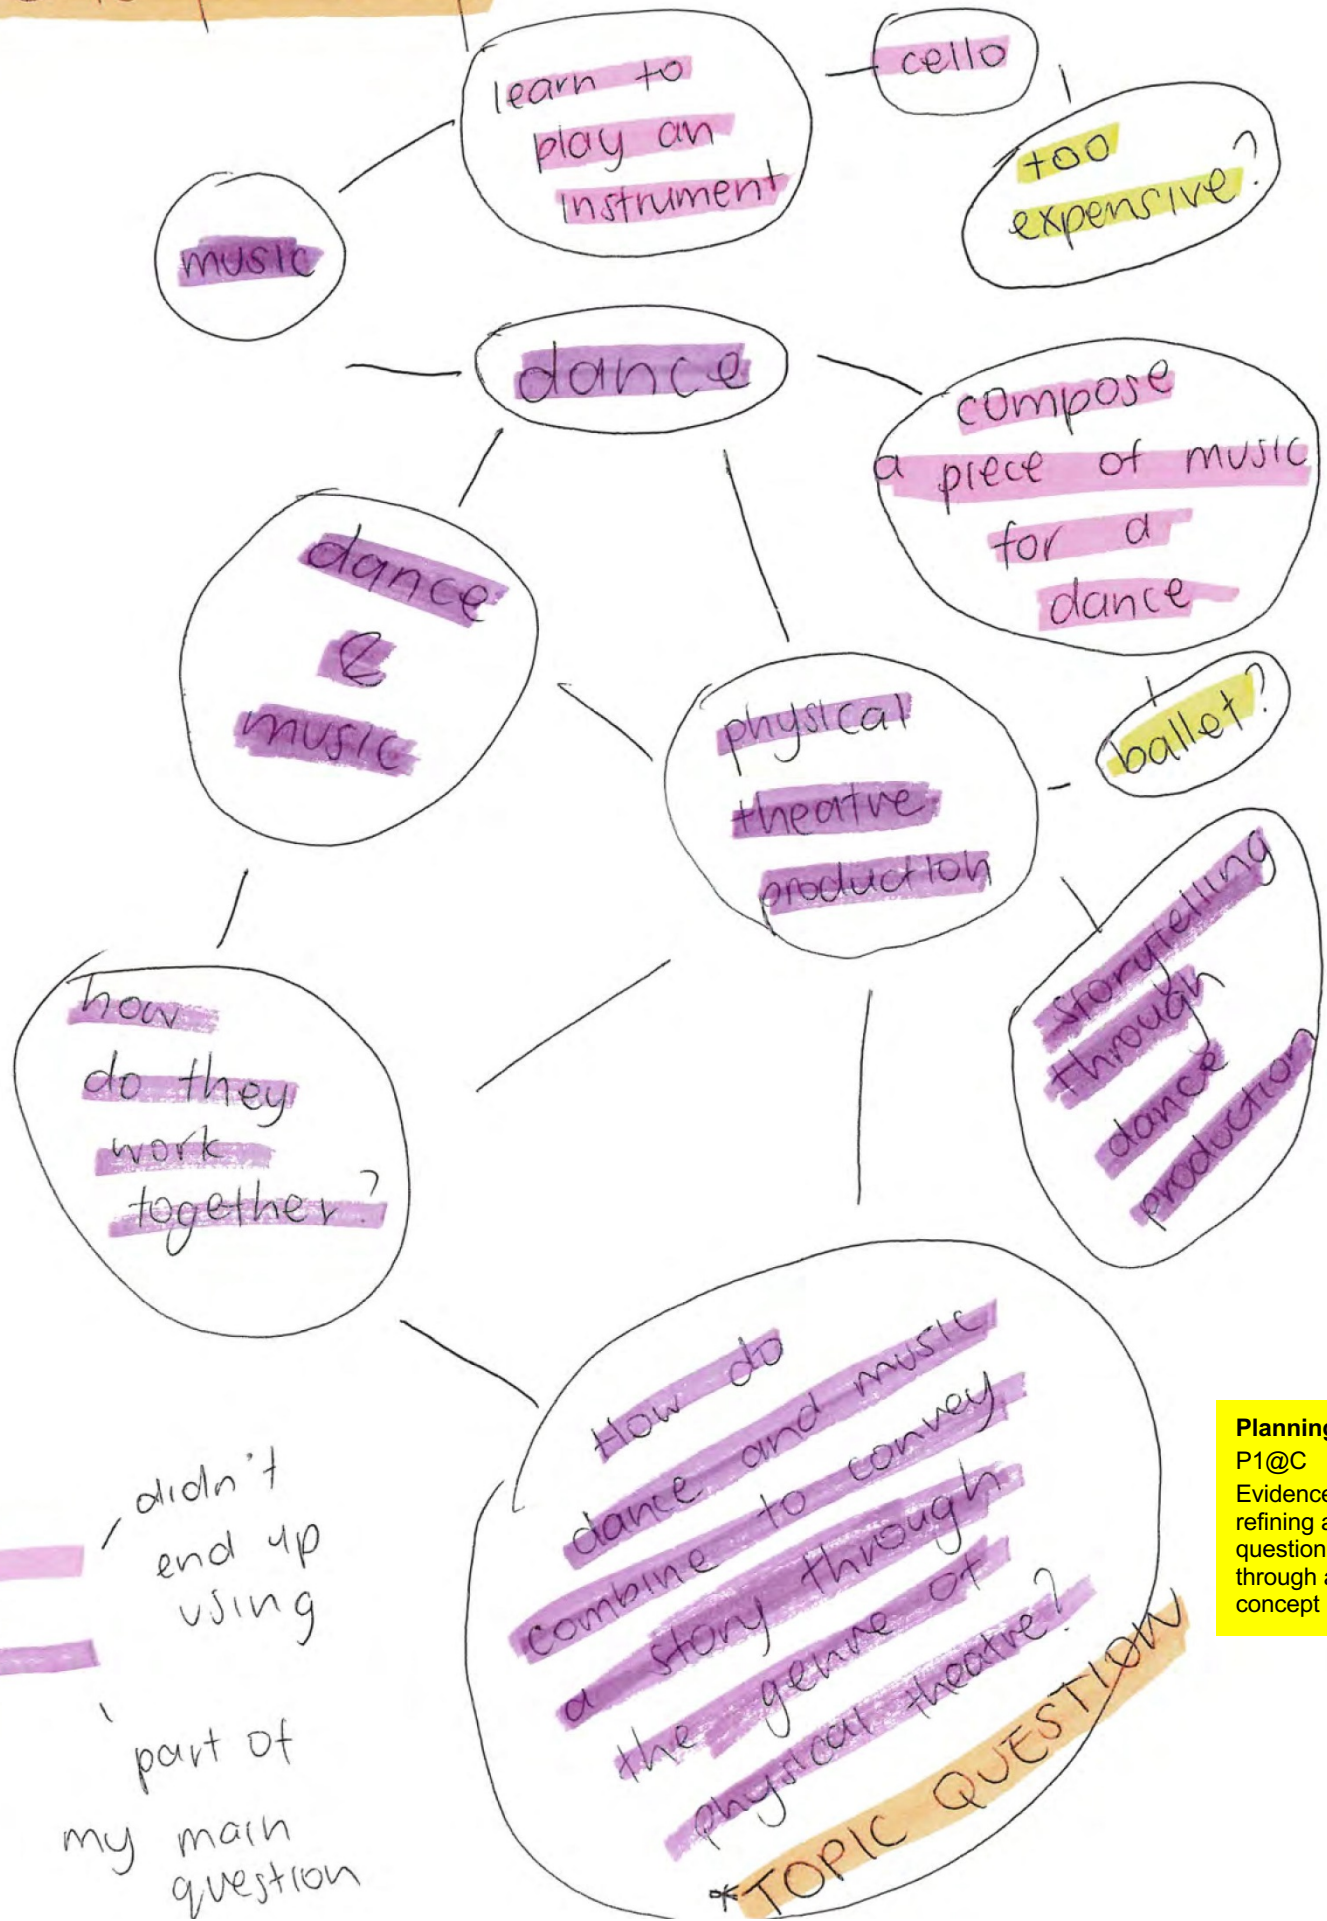 learn to
play an
instrument
cello
too
expensive?
music
dance
compose
a piece of music
for a
dance
dance
&
music
physical
theatre
production
ballet?
storytelling
through
dance
production
how
do they
work
together?
How do
dance and music
combine to convey
a story through
the genre of
physical theatre?
*TOPIC QUESTION
didn't
end up
using
part of
my main
question
Planning
P1@C
Evidence
refining a
question
through a
concept